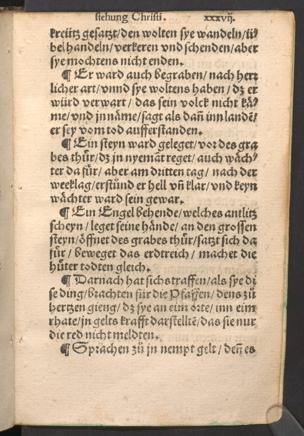 stehung Christi. xxxvij.
kreütz gesatzt/den wolten sye wandeln/ü/
bel handeln/verkeren vnd schenden/aber
sye mochtens nicht enden.
¶ Er ward auch begraben/nach hertz
licher art/vnnd sye woltens haben/dz er
würd verwart/das sein volck nicht kä/
me/vnd jn näme/sagt als dañ inn landē/
er sey vom tod aufferstanden.
¶ Ein steyn ward geleget/vor des gra
bes thür/dz in nyemāt reget/auch wäch/
ter da für/aber am dritten tag/nach der
weeklag/erstünd er hell vñ klar/vnd keyn
wächter ward sein gewar.
¶ Ein Engel behende/welches antlitz
scheyn/leget seine hände/an den grossen
steyn/öffnet des grabes thür/satzt sich da
für/beweget das erdtreich/machet die
hüter todten gleich.
¶ Darnach hat sich straffen/als sye di
se ding/btachten für die Pfaffen/dens zü
hertzen gieng/dz sye an eim orte/inn eim
rhate/jn gelts krafft darstelltē/das sie nur
die red nicht meldten.
¶ Sprachen zü jn nempt gelt/deñ es